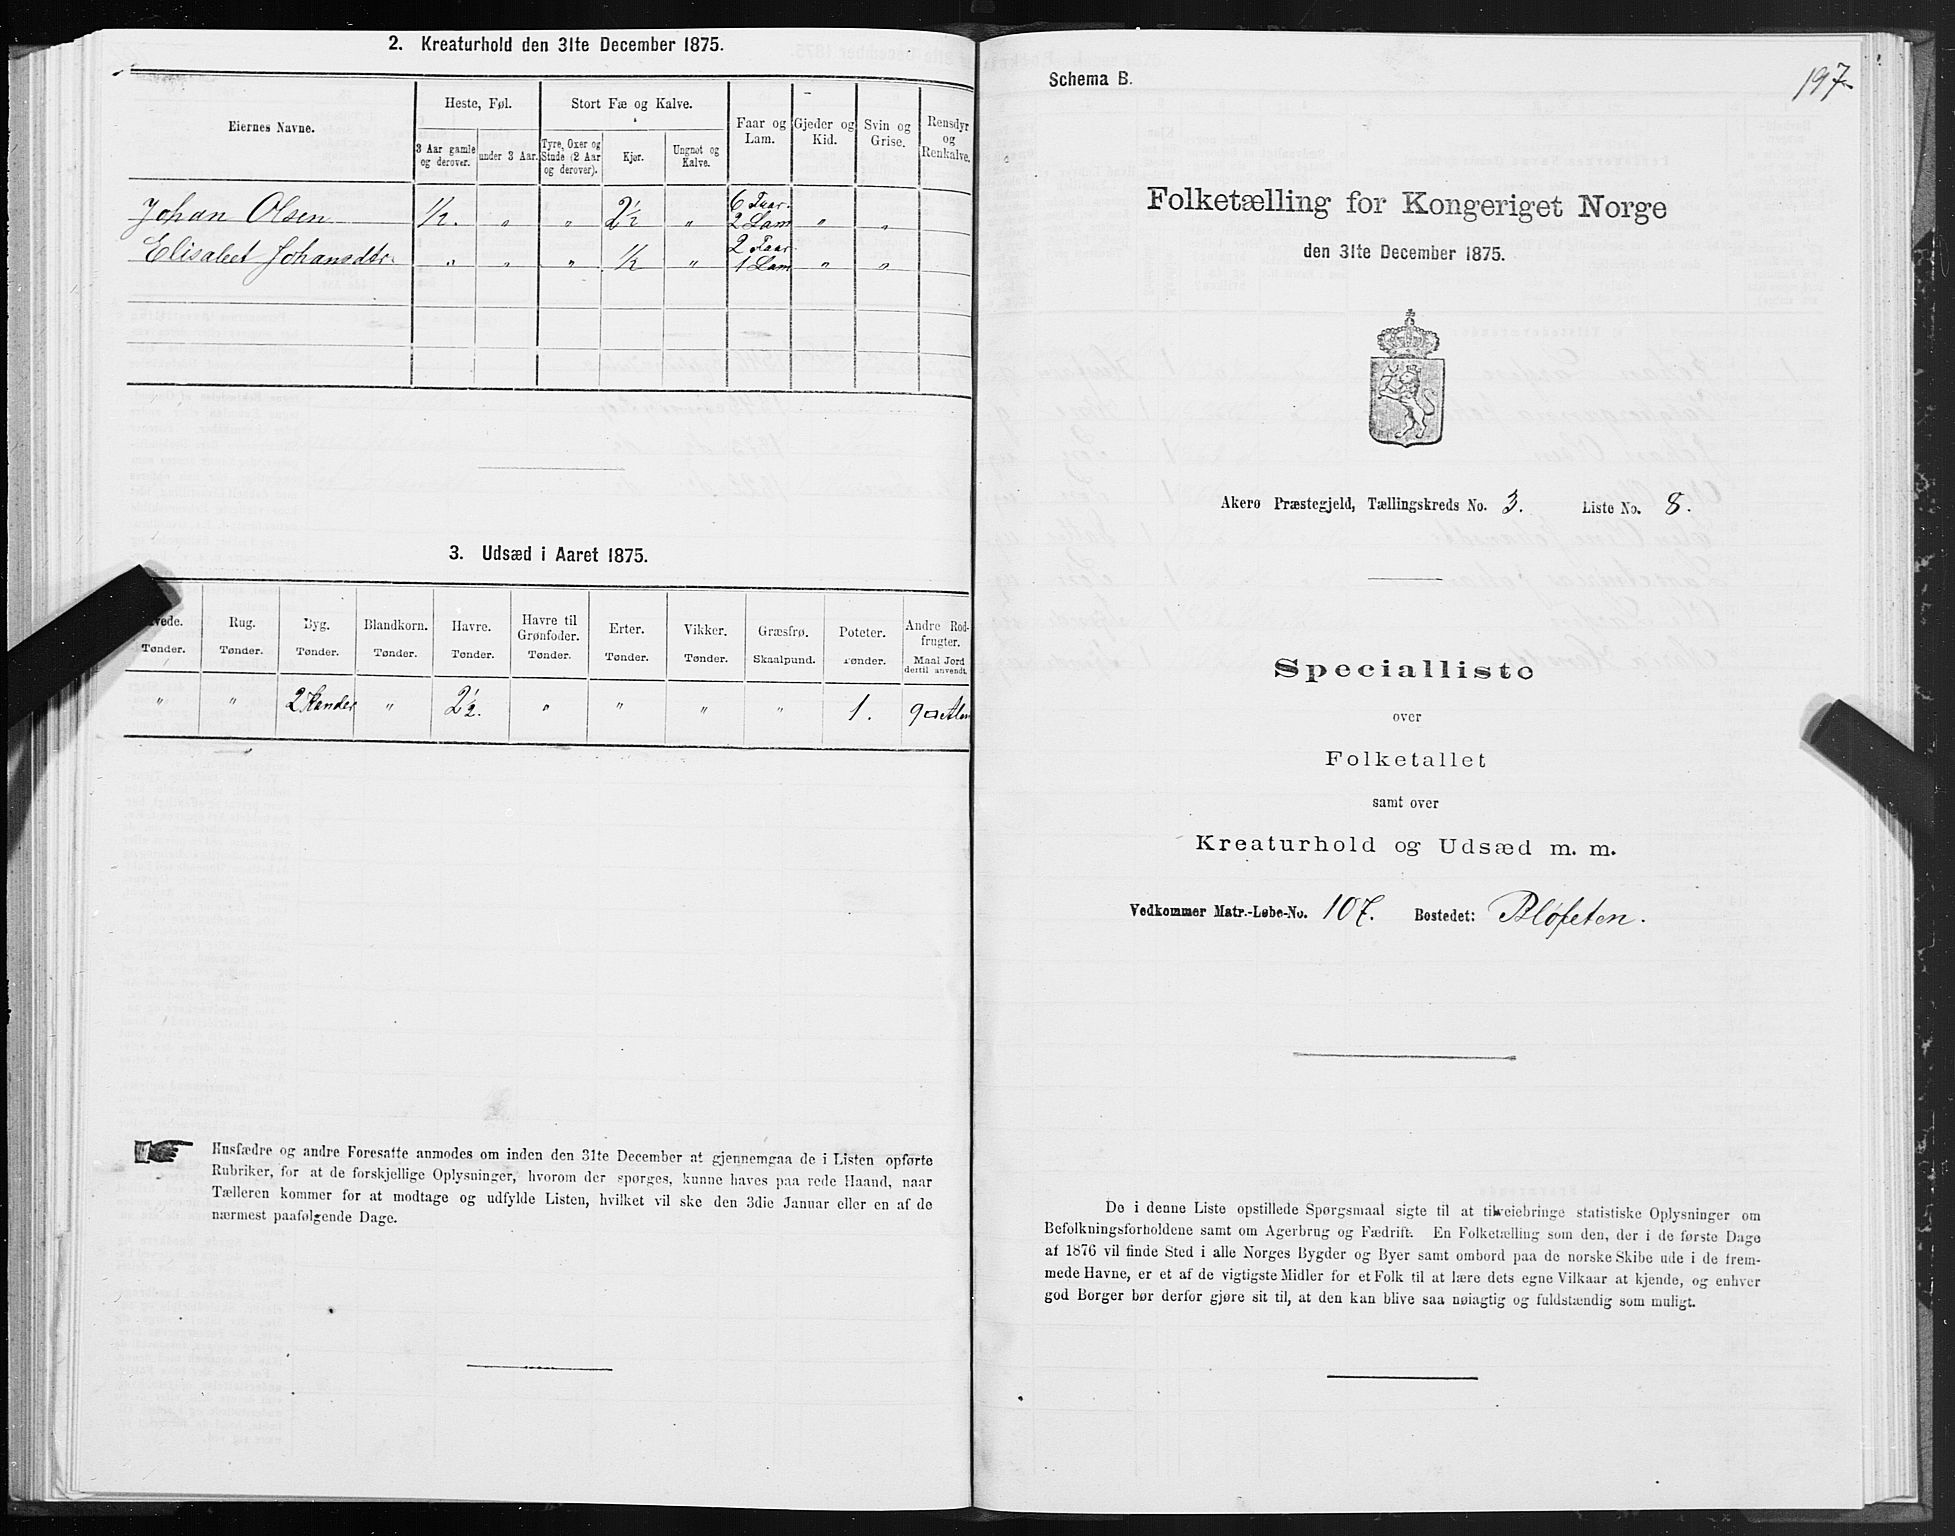 2. Kreaturhold den 31te December 1875.
Eiernes Navne.
Heste, Føl.
Stort Fæ og Kalve.
Faar og Lam.
Gjeder og Kid.
Svin og Grise.
Rensdyr og Renkalve.
3 Aar gamle og derover.
under 3 Aar.
Tyre, Oxer og Stude (2 Aar og derover).
Kjør.
Ungnøt og Kalve.
Johan Olsen 1/2. " " 2 1/2 " 6 Faar. 2 Lam " "
Elisabet Johansdtr. " " " 1/2 " 2 Faar 1 Lam " "
3. Udsæd i Aaret 1875.
vede. Tønder.
Rug. Tønder.
Byg. Tønder.
Blandkorn. Tønder.
Havre. Tønder.
Havre til Grønfoder. Tønder.
Erter. Tønder.
Vikker. Tønder.
Græsfrø. Skaalpund.
Poteter. Tønder.
Andre Rodfrugter. Maal Jord dertil anvendt.
" " 2 Kander " 2 1/2. " " " " 1. 9 □ Alen
Husfædre og andre Foresatte anmodes om inden den 31te December at gjennemgaa de i Listen opførte
Rubriker, for at de forskjellige Oplysninger, hvorom der spørges, kunne haves paa rede Haand, naar
Tælleren kommer for at modtage og udfylde Listen, hvilket vil ske den 3die Januar eller en af de
nærmest paafølgende Dage.
197
Schema B.
Folketælling for Kongeriget Norge
den 31te December 1875.
Akerø Præstegjeld, Tællingskreds No. 3. Liste No. 8.
Specialliste
over
Folketallet
samt over
Kreaturhold og Udsæd m. m.
Vedkommer Matr.-Løbe-No. 107. Bostedet: Bløfeten.
De i denne Liste opstillede Spørgsmaal sigte til at tilveiebringe statistiske Oplysninger om
Befolkningsforholdene samt om Agerbrug og Fædrift. En Folketælling som den, der i de første Dage
af 1876 vil finde Sted i alle Norges Bygder og Byer samt ombord paa de norske Skibe ude i de frem-
mede Havne, er et af de vigtigste Midler for et Folk til at lære dets egne Vilkaar at kjende, og enhver
god Borger bør derfor gjøre sit til, at den kan blive saa nøiagtig og fuldstændig som muligt.